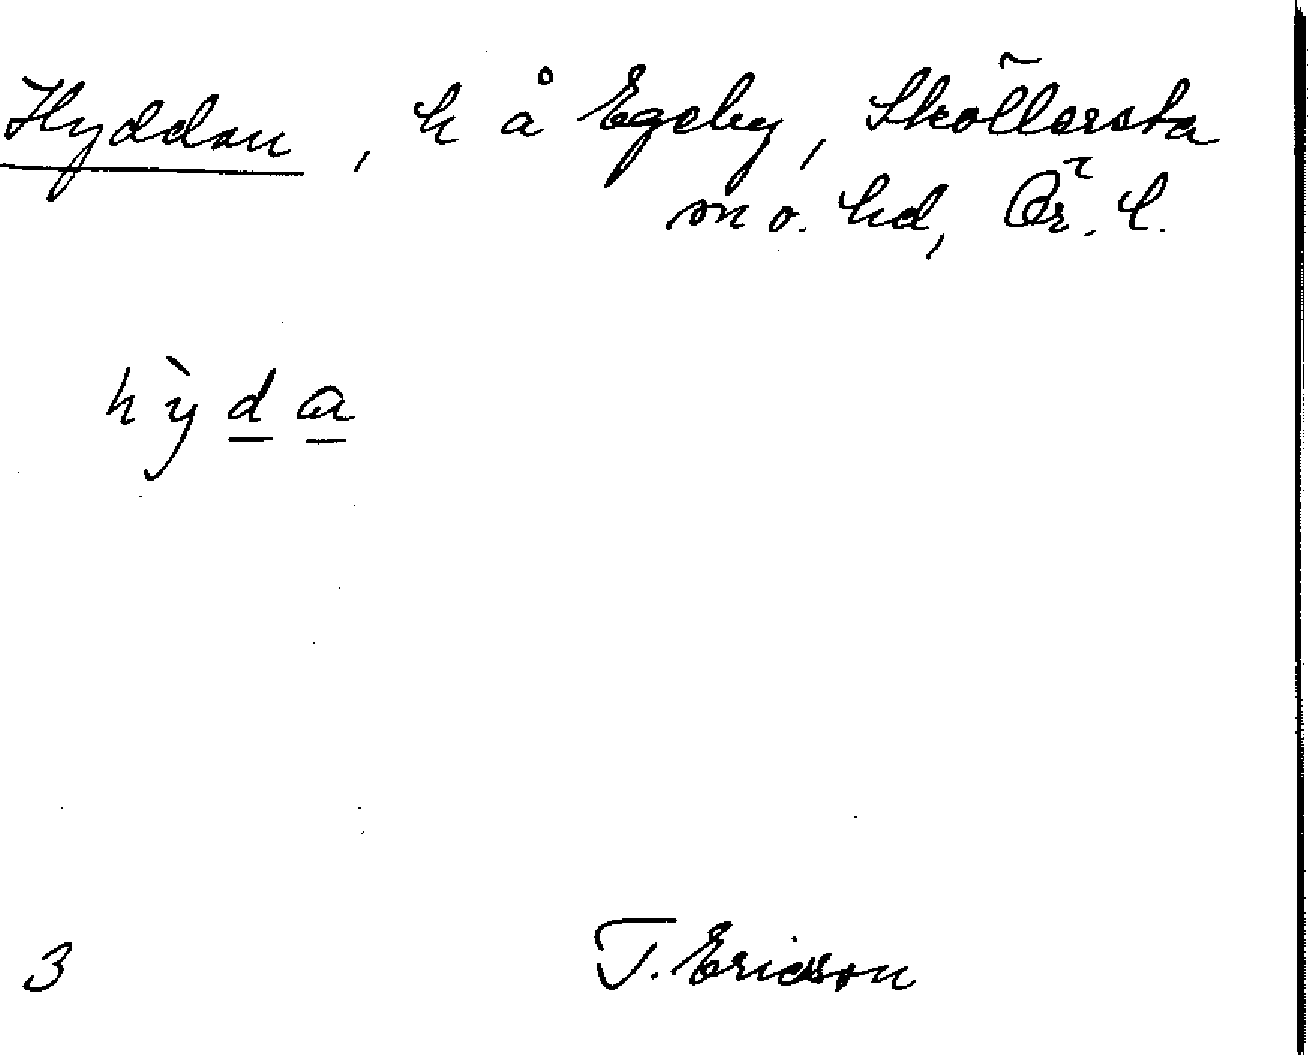 Hyddan, h å Egeby, Sköllersta
sn o. hd, Ör. l.
hỳda
3 T. Ericsson